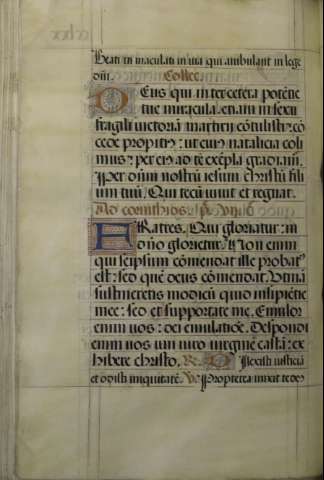 Beati immaculati in uia qui ambulant in lege
dñi. Collec.
DEus qui inter cetera potētie
tue miracula: etiam in sexu
fragili uictoriā martirii cōtulisti: cō
cede propitius: ut cuius natalicia coli
mus: per eius ad te exēpla gradiam̃.
Per dominū nostrū iesum christū fili
um tuū. Qui tecū uiuit et regnat.
Ad corinthios
FRatres. Qui gloriatur: in
dño glorietur. Non enim
qui seipsum cōmendat ille probat'
est: sed quē deus cōmendat. Utinā
sustineretis modicū quid insipiētie
mee: sed et supportate me. Emulor
enim uos: dei emulatiōe. Despondi
enim uos uni uiro uirginē castā: ex
hibere christo. R. Dilexisti iusticiā
et odisti iniquitatē. V. Propterea unxit te de9